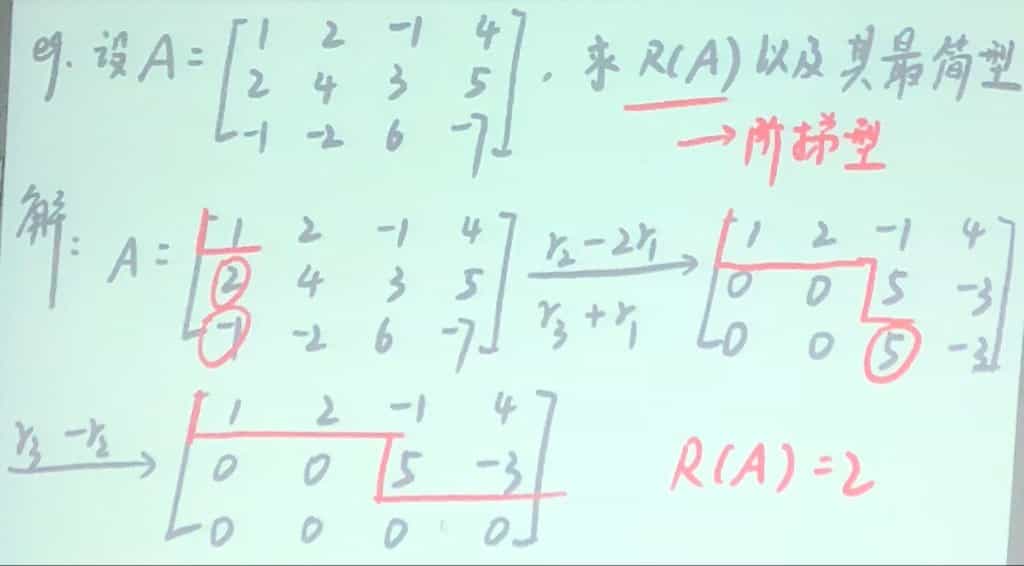 eg. 设 A = [1 2 -1 4
2 4 3 5
-1 -2 6 -7]. 求 R(A) 以及其最简型
→ 阶梯型
解: A = [1 2 -1 4
2 4 3 5
-1 -2 6 -7] r₂-2r₁ r₃+r₁ → [1 2 -1 4
0 0 5 -3
0 0 5 -3]
r₃-r₂ → [1 2 -1 4
0 0 5 -3
0 0 0 0] R(A)=2